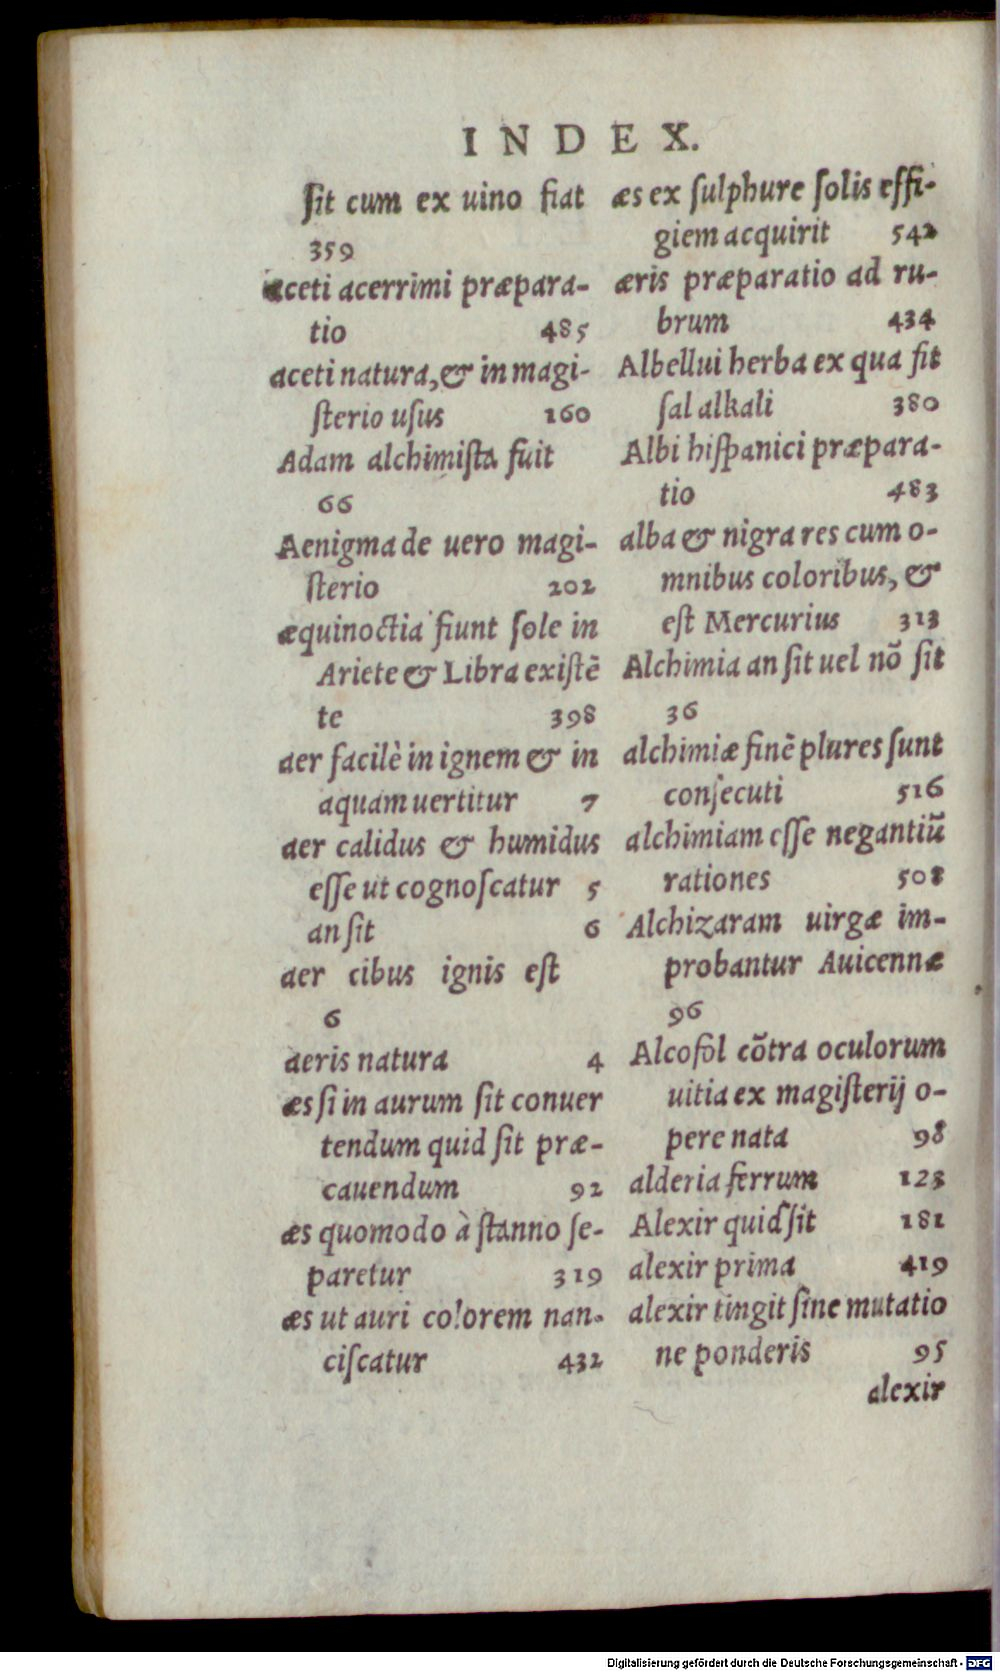 INDEX.
ſit cum ex uino fiat
359
aceti acerrimi præpara-
tio 485
aceti natura, & in magi-
ſterio uſus 160
Adam alchimiſta fuit
66
Aenigma de uero magi-
ſterio 202
æquinoctia fiunt ſole in
Ariete & Libra exiſtẽ
te 398
aer facilè in ignem & in
aquam uertitur 7
aer calidus & humidus
eſſe ut cognoſcatur 5
an ſit 6
aer cibus ignis eſt
6
aeris natura 4
æs ſi in aurum ſit conuer
tendum quid ſit præ-
cauendum 92
æs quomodo à ſtanno ſe-
paretur 319
æs ut auri colorem nan-
ciſcatur 432
æs ex ſulphure ſolis effi-
giem acquirit 542
æris præparatio ad ru-
brum 434
Albellui herba ex qua fit
ſal alkali 380
Albi hiſpanici præpara-
tio 483
alba & nigra res cum o-
mnibus coloribus, &
eſt Mercurius 313
Alchimia an ſit uel nõ ſit
36
alchimiæ finẽ plures ſunt
conſecuti 516
alchimiam eſſe negantiũ
rationes 508
Alchizaram uirgæ im-
probantur Auicennæ
96
Alcofol cõtra oculorum
uitia ex magiſterij o-
pere nata 98
alderia ferrum 123
Alexir quid ſit 181
alexir prima 419
alexir tingit ſine mutatio
ne ponderis 95
alexir
Digitalisierung gefördert durch die Deutsche Forschungsgemeinschaft - DFG